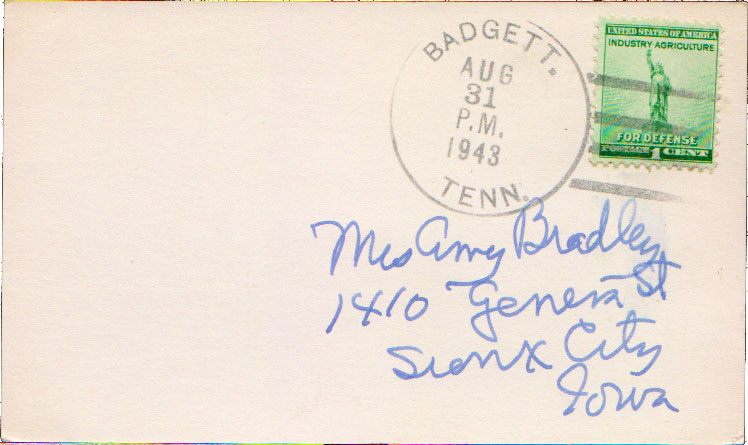 BADGETT.
AUG
31
P.M.
1943
TENN.
UNITED STATES OF AMERICA
INDUSTRY·AGRICULTURE
FOR DEFENSE
POSTAGE 1 CENT
Mrs Amy Bradley
1410 Geneva St
Sioux City
Iowa